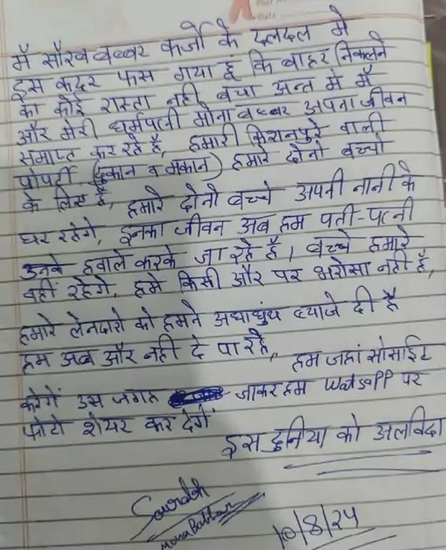 मैं सौरव बब्बर कर्जो के दलदल मे
इस कदर फस गया हूँ कि बाहर निकलने
का कोई रास्ता नही बचा अन्त मे मैं
और मेरी धर्मपत्नी मोना बब्बर अपना जीवन
समाप्त कर रहे है, हमारी किशनपुरे वाली
प्रोपर्टी (दुकान व मकान) हमारे दोनो बच्चो
के लिए है, हमारे दोनो बच्चे अपनी नानी के
घर रहेगे, इनका जीवन अब हम पती-पत्नी
उनके हवाले करके जा रहे है। बच्चे हमारे
वहीं रहेगे, हमे किसी और पर भरोसा नही है,
हमारे लेनदारो को हमने अधाधुंध ब्याजे दी है
हम अब और नही दे पा रहे,, हम जहां सोसाईट
करेगें उस जगह जाकर हम Watsapp पर
फोटो शेयर कर देगें
इस दुनिया को अलविदा
Sourabh
Mona Babbar
10/8/24